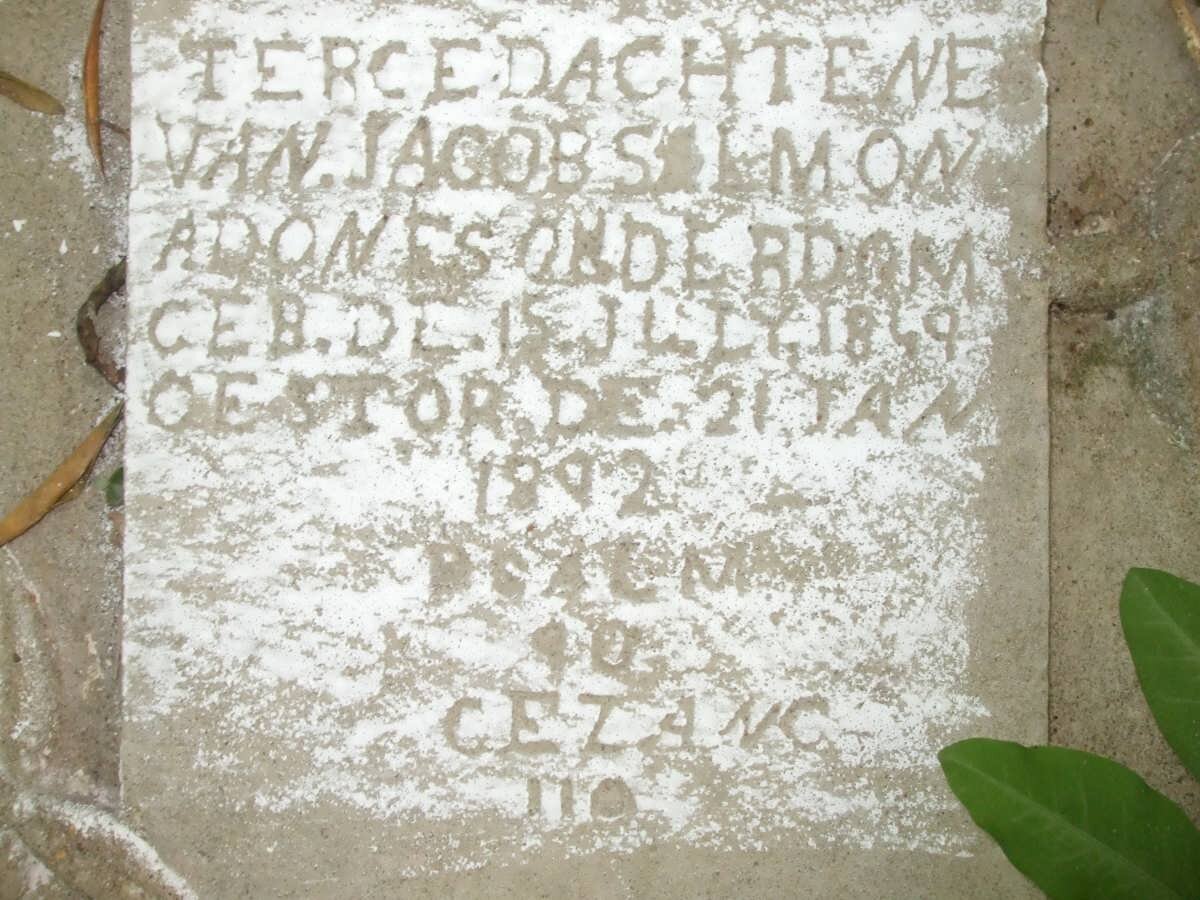 TERGEDACHTENE
VAN.JACOB SILMON
ADONES ONDERDAM
GEB.DE.15.JULLY.1859
GESTOR.DE.21 JAN
1892
PSALM
90
GEZANG
110